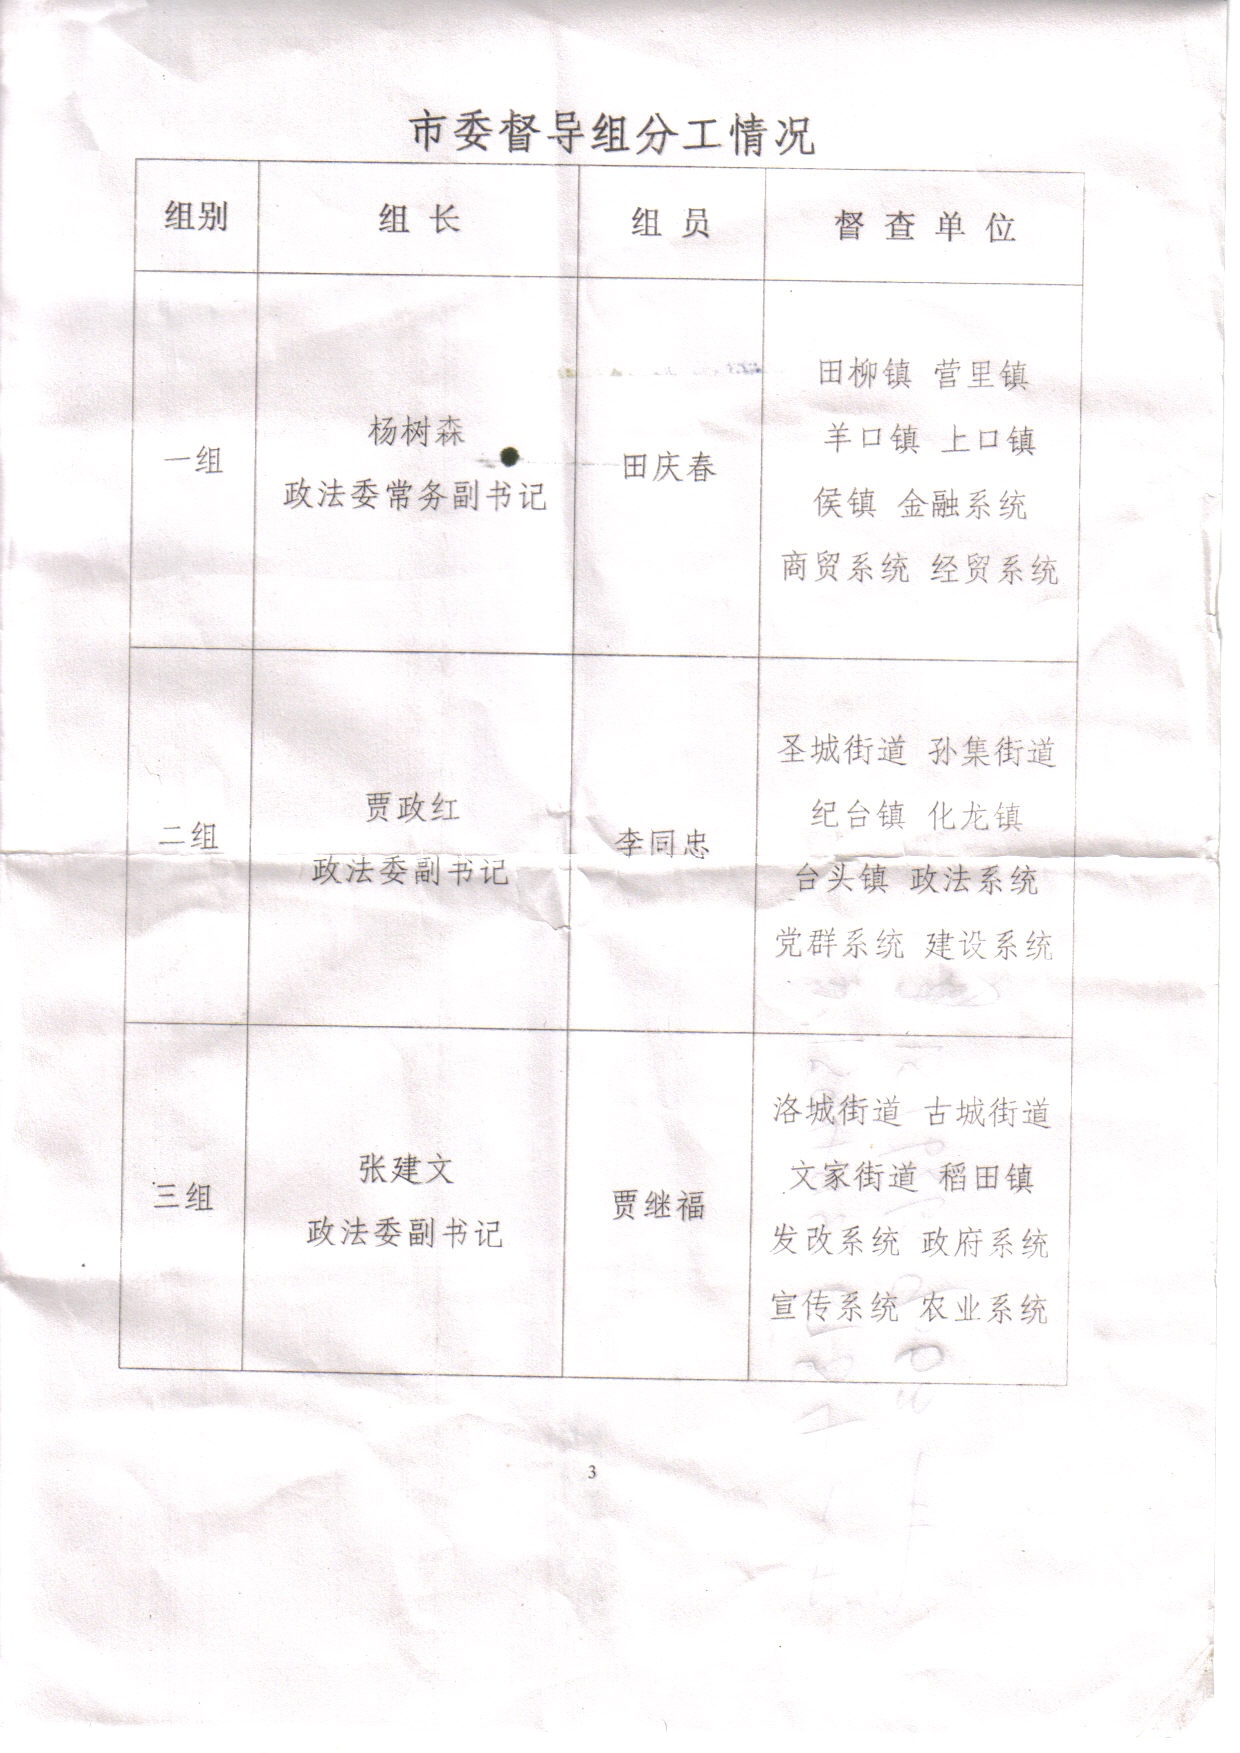 市委督导组分工情况
组别 组长 组员 督查单位
一组
杨树森
政法委常务副书记
田庆春
田柳镇 营里镇
羊口镇 上口镇
侯镇 金融系统
商贸系统 经贸系统
二组
贾政红
政法委副书记
李同忠
圣城街道 孙集街道
纪台镇 化龙镇
台头镇 政法系统
党群系统 建设系统
三组
张建文
政法委副书记
贾继福
洛城街道 古城街道
文家街道 稻田镇
发改系统 政府系统
宣传系统 农业系统
3